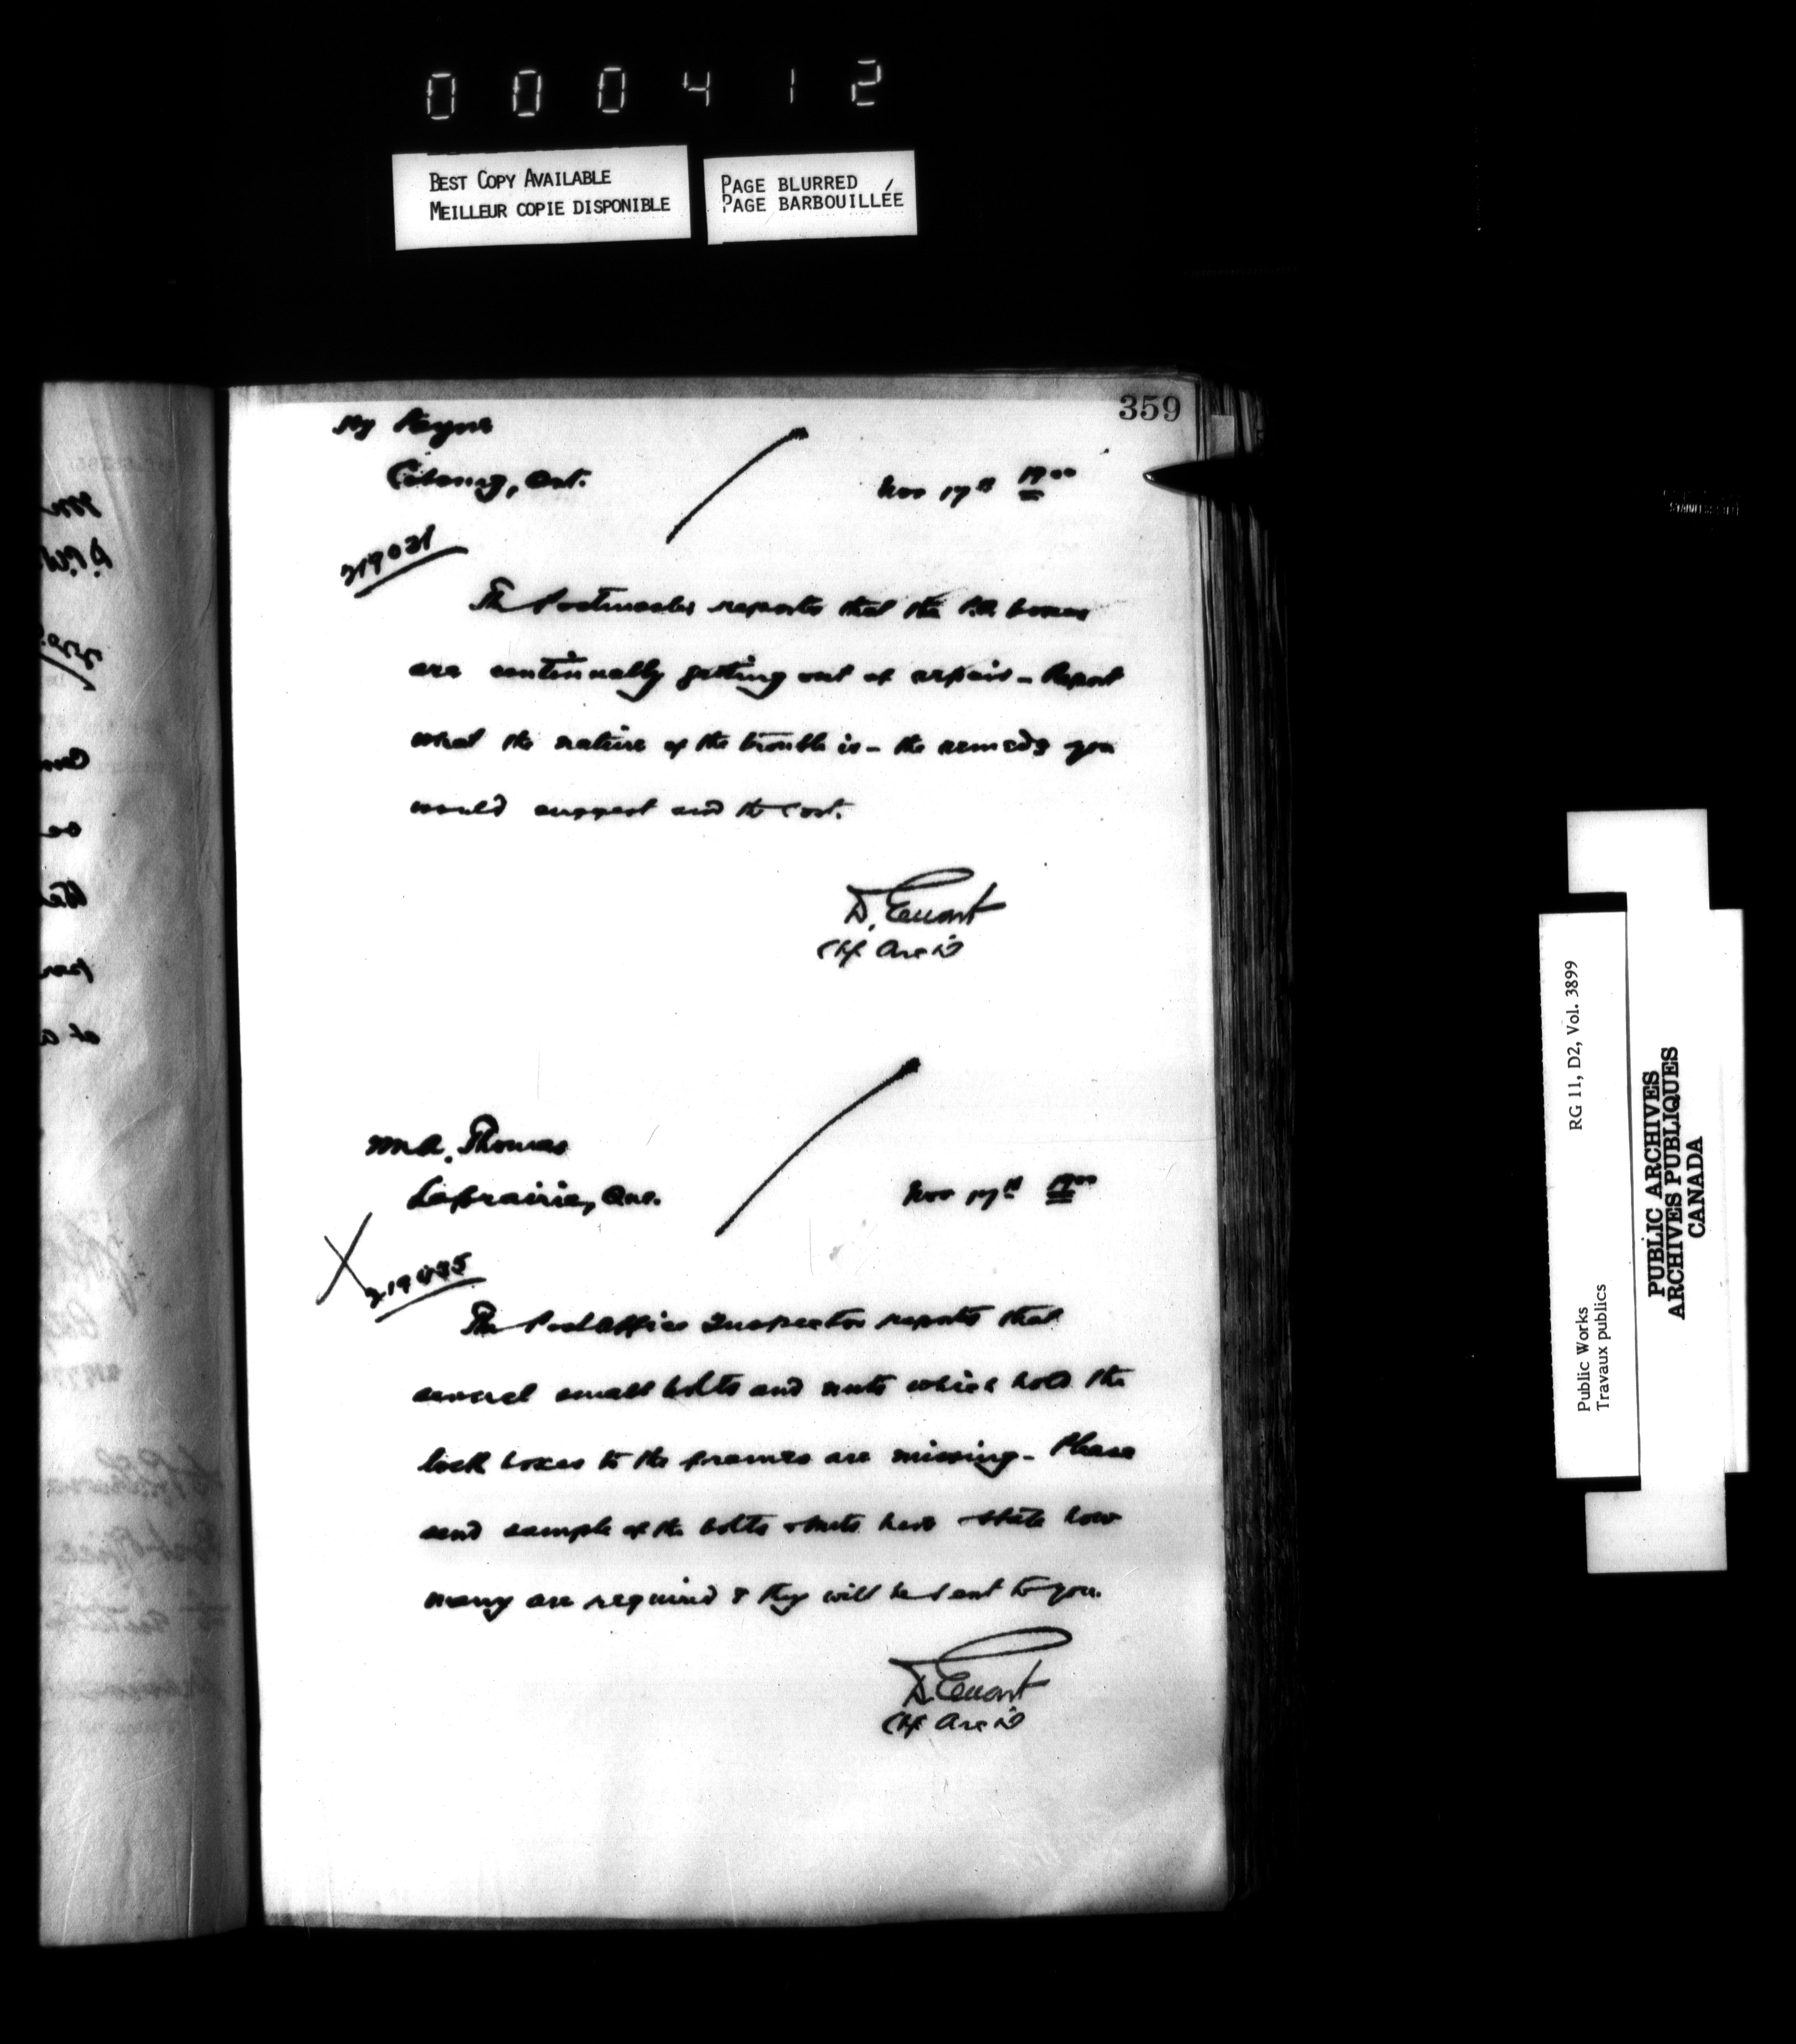 000412
BEST COPY AVAILABLE
MEILLEUR COPIE DISPONIBLE
PAGE BLURRED
PAGE BARBOUILLÉE
359
Hy Payne
Cobourg, Ont.
Nov 17th 1900
219031
The Postmaster reports that the P.O. boxes
are continually getting out of repair - Report
what the nature of the trouble is - the remedy you
would suggest and the cost.
D. Ewart
Ch. Archt
Wm A. Thomas
Laprairie, Que.
Nov 17th 1900
X 219435
The Post Office Inspector reports that
several small bolts and nuts which hold the
lock boxes to the frames are missing - Please
send sample of the bolts & nuts here & state how
many are required & they will be sent to you.
D. Ewart
Ch. Archt
RG 11, D2, Vol. 3899
Public Works
Travaux publics
PUBLIC ARCHIVES
ARCHIVES PUBLIQUES
CANADA